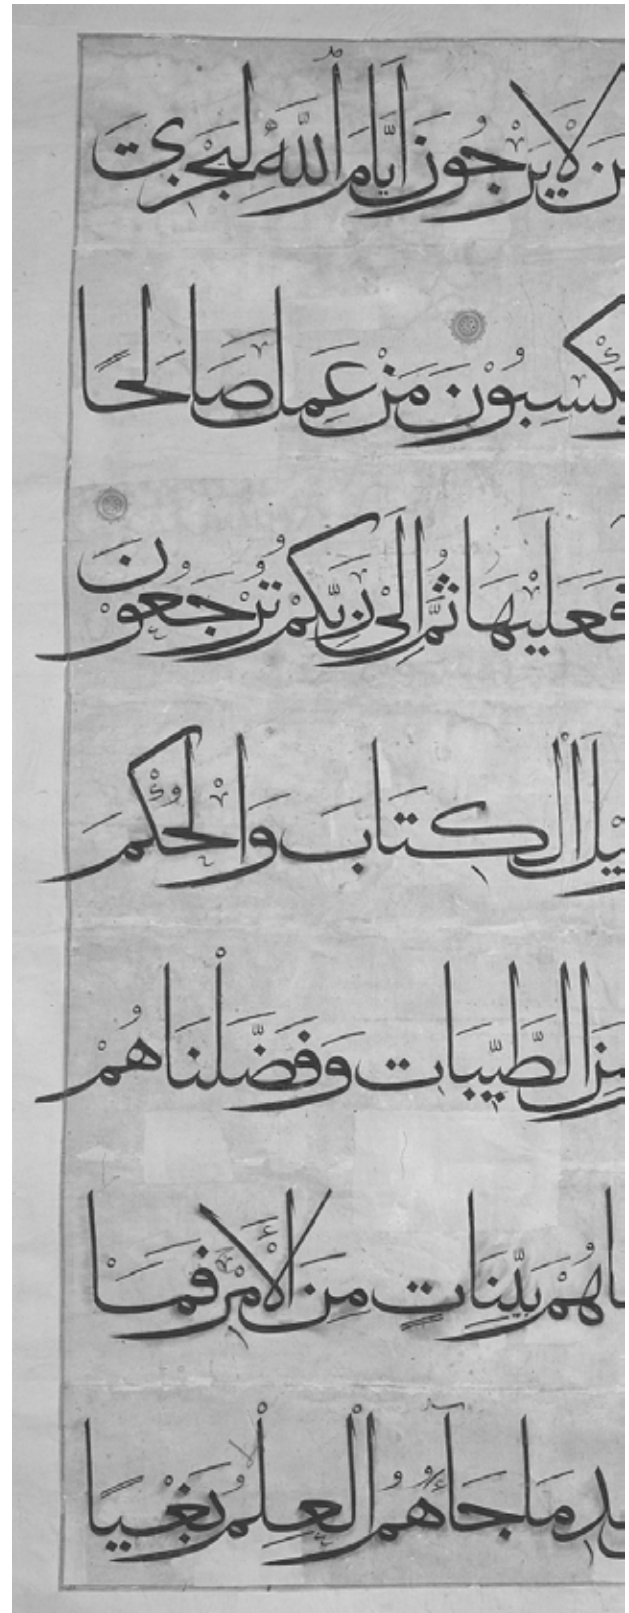 لَا يَرْجُونَ أَيَّامَ اللَّهِ لِيَجْزِيَ
يَكْسِبُوْنَ مَنْ عَمِلَ صَالِحًا
فَعَلَيْهَا ثُمَّ إِلَىٰ رَبِّكُمْ تُرْجَعُوْنَ
الْكِتَابَ وَالْحُكْمَ
مِنَ الطَّيِّبَاتِ وَفَضَّلْنَاهُمْ
بَيِّنَاتٍ مِنَ الْأَمْرِ فَمَا
مَا جَآءَهُمُ الْعِلْمُ بَغْيًا